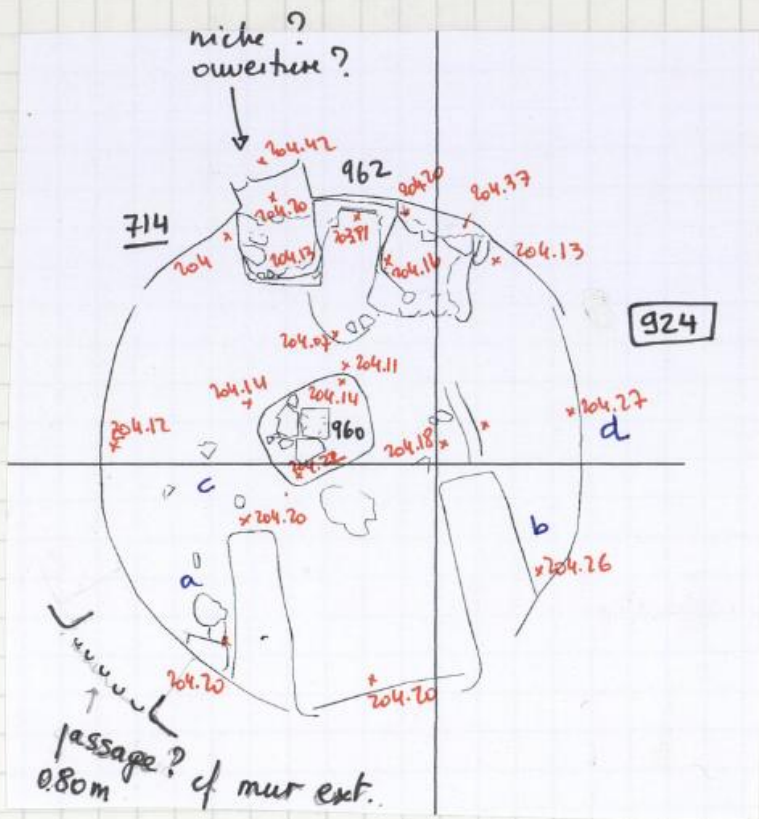 niche ?
ouverture ?
204.42
962
204.20
204.37
204.20
714
203.91
204
204.13
204.16
204.13
924
204.07
204.11
204.14
204.14
204.27
204.12
960
204.18
d
204.22
c
204.20
b
a
204.26
204.20
204.20
passage ?
0.80m
cf mur ext.